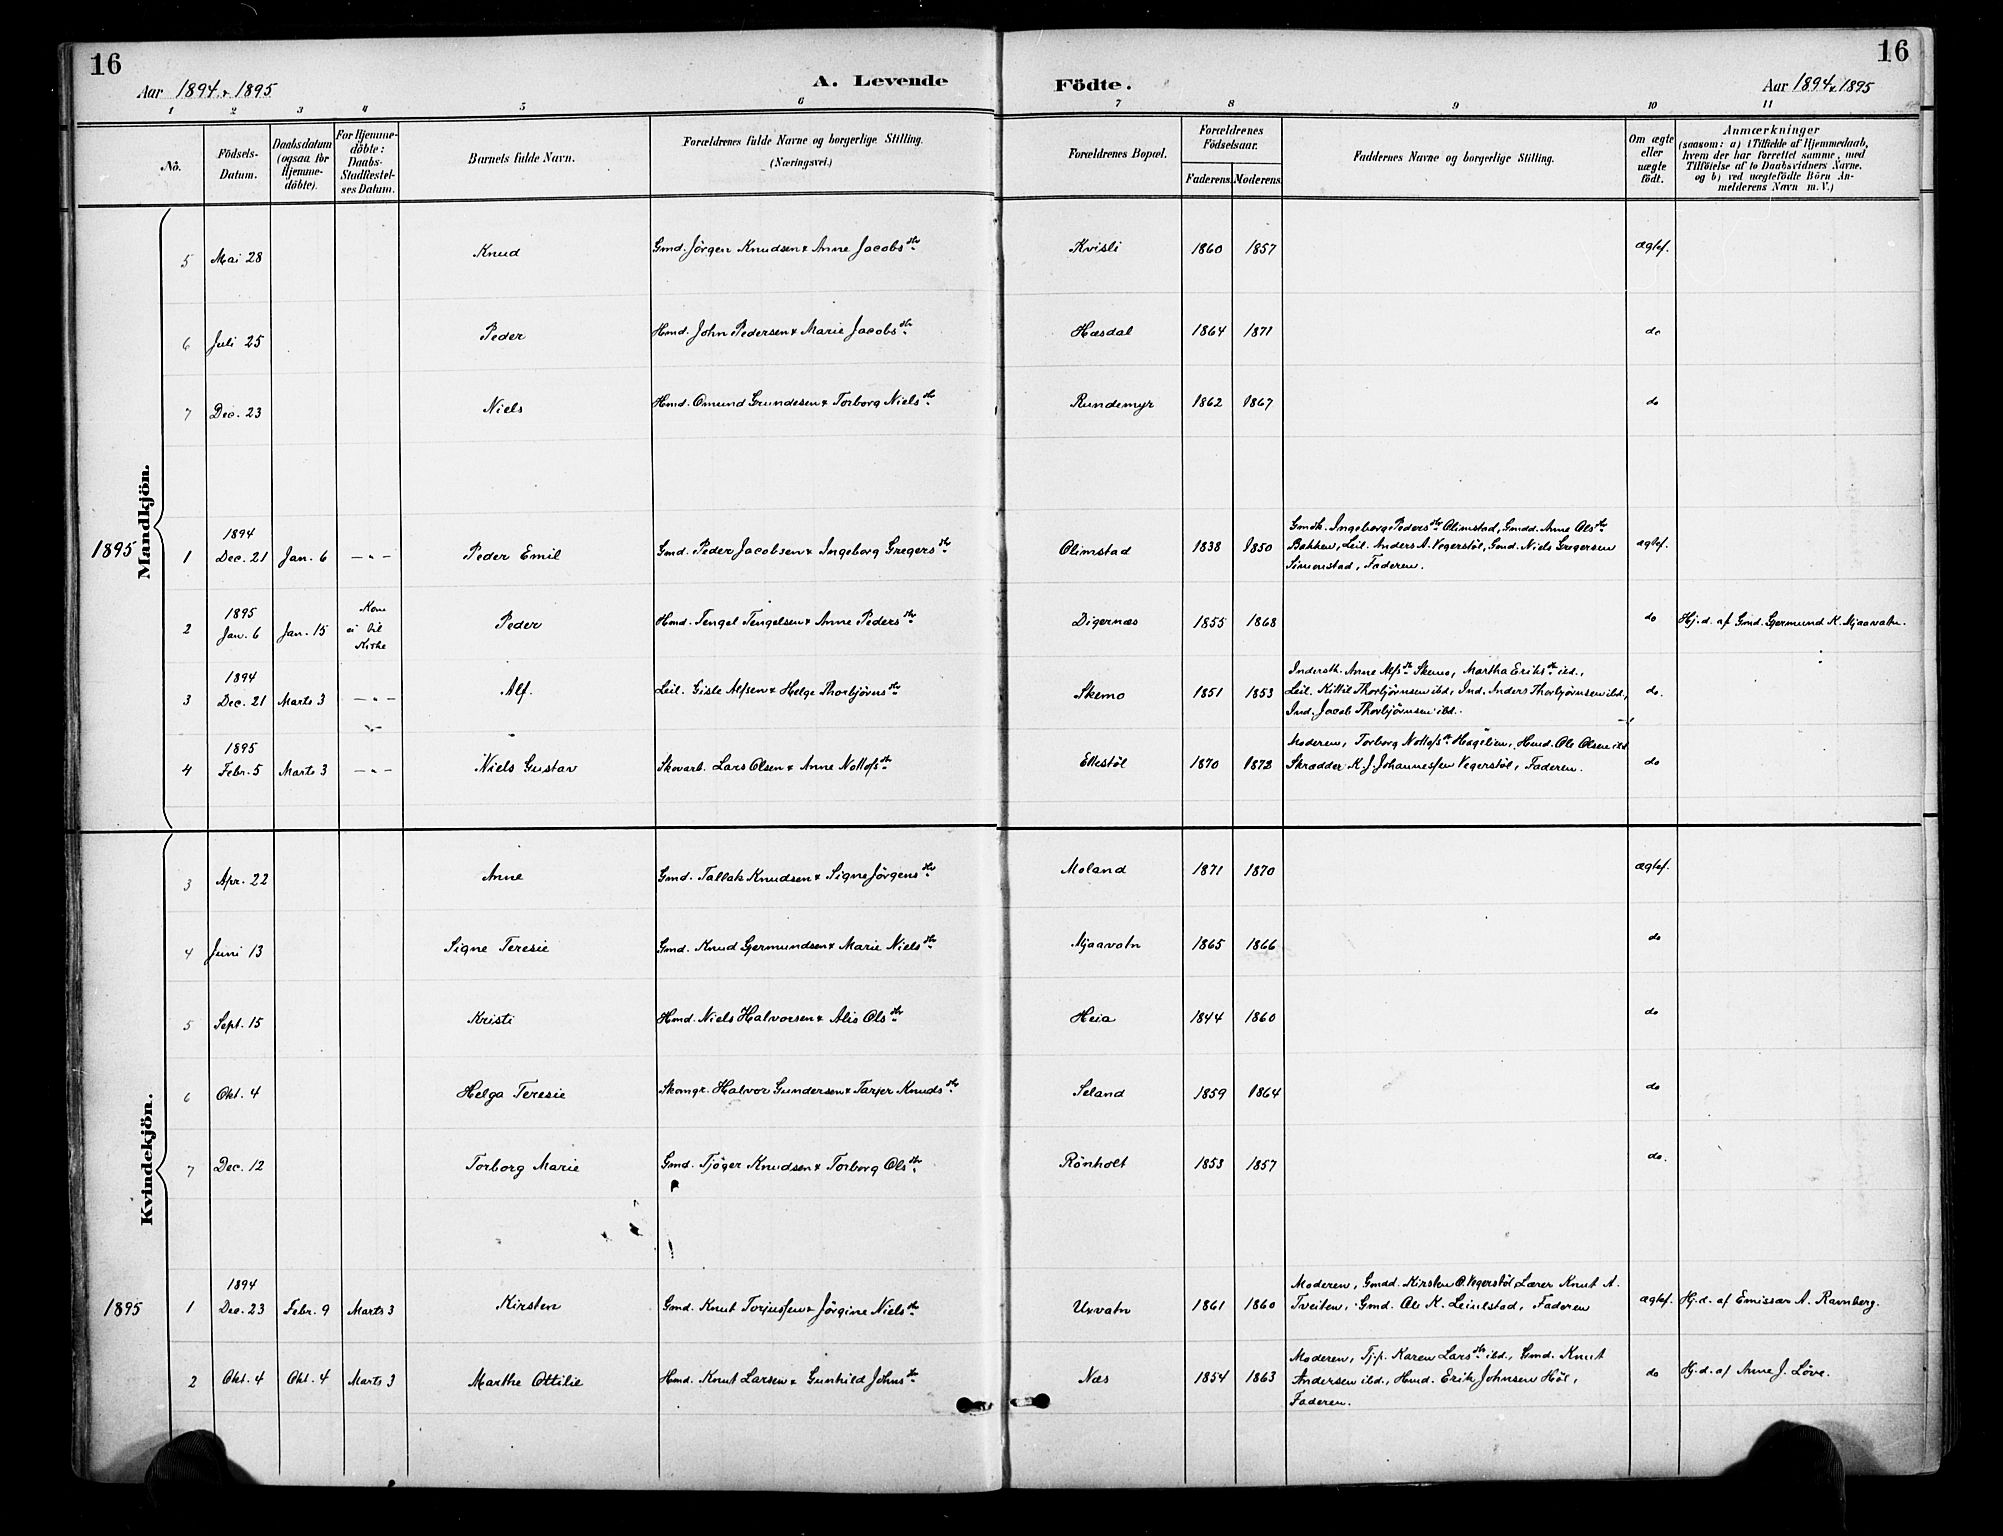 16
16
Aar 1894 & 1895
A. Levende
Födte.
Aar 1894 & 1895
1 2 3 4 5 6 7 8 9 10 11
No.
Födsels-Datum.
Daabsdatum (ogsaa för Hjemme-döbte).
For Hjemme-döbte: Daabs-Stadfæstel-ses Datum.
Barnets fulde Navn.
Forældrenes fulde Navne og borgerlige Stilling. (Næringsvei.)
Forældrenes Bopæl.
Forældrenes Födselsaar.
Faderens. Moderens.
Faddernes Navne og borgerlige Stilling.
Om ægte eller uægte födt.
Anmærkninger
(saasom: a) i Tilfælde af Hjemmedaab, hvem der har forrettet samme, med Tilföielse af to Daabsvidners Navne. og b) ved uægtefödte Börn An-melderens Navn m. V.)
Mandkjön.
5 Mai 28 Knud Gmd. Jörgen Knudsen & Anne Jacobsdtr. Kvisli 1860 1857 ægtef.
6 Juli 25 Peder Hmd. John Pedersen & Marie Jacobsdtr. Hæsdal 1864 1871 do
7 Dec. 23 Niels Hmd. Omund Grundesen & Torborg Nielsdtr. Rundemyr 1862 1867 do
1895
1 1894 Dec. 21 Jan. 6 —„— Peder Emil Gmd. Peder Jacobsen & Ingeborg Gregersdtr. Olimstad 1838 1850 Gmdk. Ingeborg Pedersdtr. Olimstad, Gmdd. Anne Olsdtr.
Bakken, Leil. Anders A. Vegerstöl, Gmd. Niels Gregersen
Simonstad, Faderen. ægtef.
2 1895 Jan. 6 Jan. 15 Kom ei til Kirke Peder Hmd. Tengel Tengelsen & Anne Pedersdtr. Digernæs 1855 1868 do Hj. d. af Gmd. Gjermund K. Mjaavatn.
3 1894 Dec. 21 Marts 3 —„— Alf. Leil. Gisle Alfsen & Helge Thorbjörnsdtr. Skemo 1851 1853 Indersth. Anne Alfsdtr. Skemo, Martha Eriksdtr. ibd.,
Leil. Kittil Thorbjörnsen ibd, Ind. Anders Thorbjörnsen ibd,
Ind. Jacob Thorbjörnsen ibd. do.
4 1895 Febr. 5 Marts 3 —„— Niels Gustav Skovarb. Lars Olsen & Anne Nottofsdtr. Ettestöl 1870 1872 Moderen, Torborg Nottofsdtr. Hegelien, Hmd. Ole Olsen ibd
Skrædder K. J. Johannesfen Vegerstöl, Faderen. do
Kvindekjön.
3 Apr. 22 Anne Gmd. Tallak Knudsen & Signe Jörgensdtr. Moland 1871 1870 ægtef.
4 Juni 13 Signe Teresie Gmd. Knud Gjermundsen & Marie Nielsdtr. Mjaavatn 1865 1866 do
5 Sept. 15 Kristi Hmd. Niels Halvorsen & Alis Olsdtr. Heia 1844 1860 do
6 Okt. 4 Helga Teresie Skomgr. Halvor Gundersen & Tarjer Knudsdtr. Seland 1859 1864 do
7 Dec. 12 Torborg Marie Gmd. Tjöger Knudsen & Torborg Olsdtr. Rönholt 1853 1857 do.
1895
1 1894 Dec. 23 Febr. 9 Marts 3 Kirsten Gmd. Knut Torjusfen & Jörgine Nielsdtr. Uxvatn 1861 1860 Moderen, Gmdd. Kirsten O. Vegerstöl, Lærer Knut A.
Tveiten, Gmd. Ole K. Leiulstad, Faderen ægtef. Hj. d. af Emissær A. Ravnberg.
2 Okt. 4 Okt. 4 Marts 3 Marthe Ottilie Hmd. Knut Larsen & Gunhild Johnsdtr. Næs 1854 1863 Moderen, Tj. p. Karen Larsdtr. ibd., Gmd. Knut
Andersen ibd., Hmd. Erik Johnsen Höl,
Faderen. do Hj. d. af Anne J. Löve.